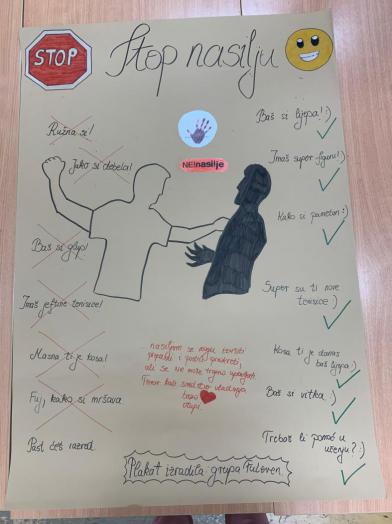 STOP
Stop nasilju
Ružna si!
Jako si debela!
Baš si glup!
Imaš jeftine tenisice!
Masna ti je kosa!
Fuj, kako si mršava
Past ćeš razred.
NE!nasilje
Baš si lijepa! :)
Imaš super figuru! :)
Kako si pametan :)
Super su ti nove
tenisice :)
Kosa ti je danas
baš lijepa :)
Baš si vitka :)
Trebaš li pomoć u
učenju? :)
nasiljem se mogu
pripadi i postići
ali se ne može trajno
Teror kao sredstvo vladanja
brzo
otupi.
Plakat izradila grupa